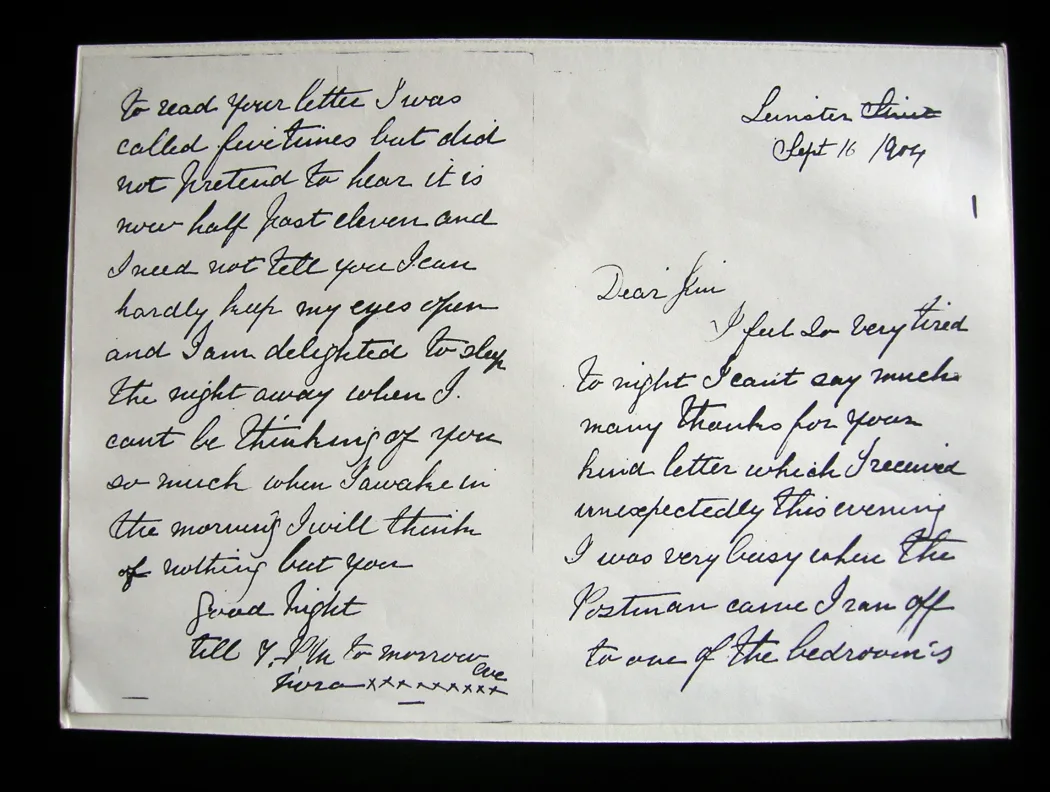 Leinster Street
Sept 16 1904
Dear Jim
I feel so very tired
to night I cant say much
many thanks for your
kind letter which I received
unexpectedly this evening
I was very busy when the
Postman came I ran off
to one of the bedroom's
to read your letter I was
called five times but did
not pretend to hear it is
now half past eleven and
I need not tell you I can
hardly keep my eyes open
and I am delighted to sleep
the night away when I
cant be thinking of you
so much when I awake in
the morning I will think
of nothing but you
Good night
till 7. PM to morrow
eve
Nora xxxxxxxxx